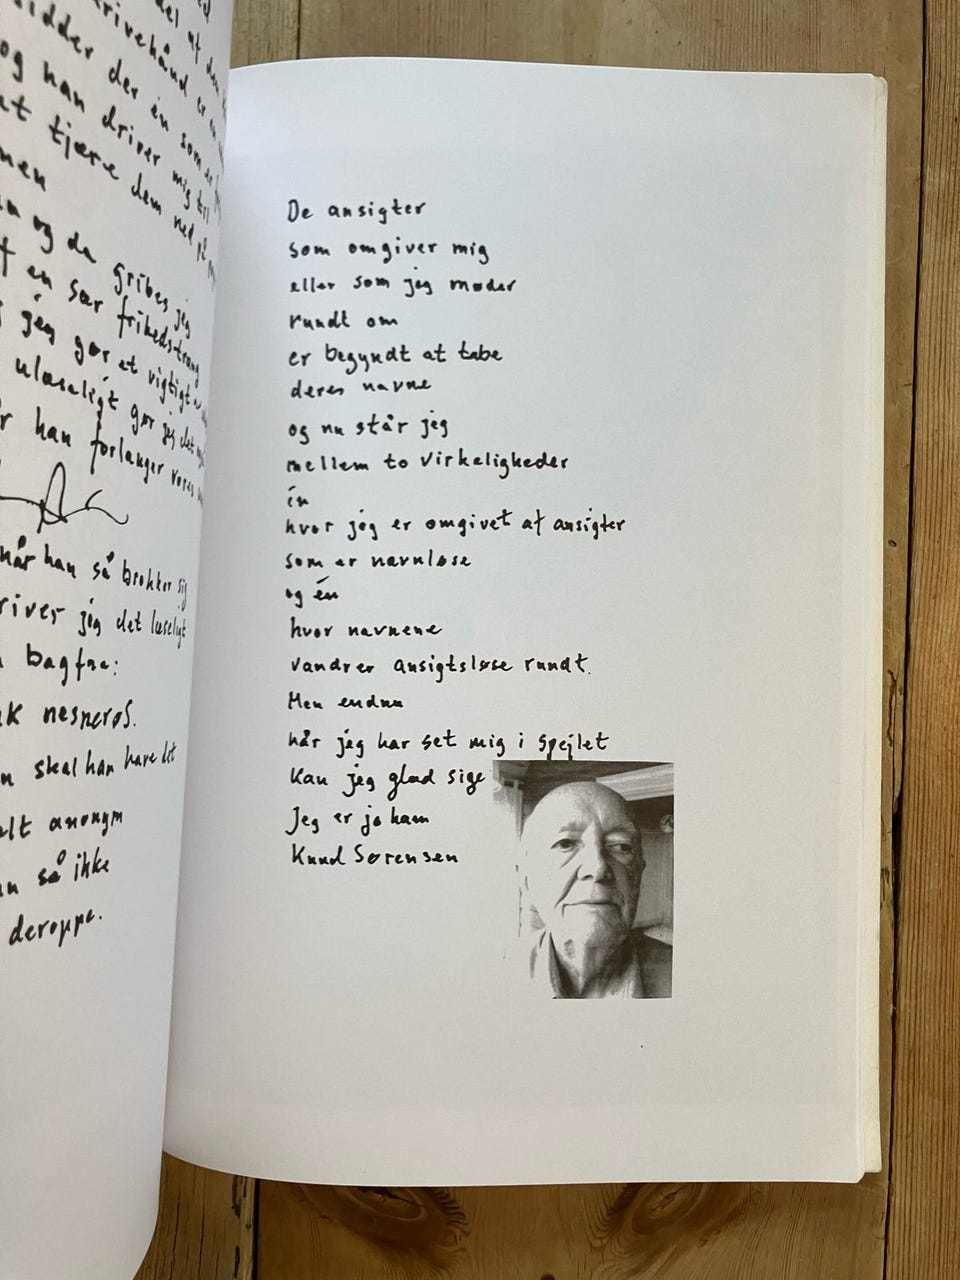 del af den
skrivehånd er en
sidder der én som er
og han driver mig til
at tjære dem ned på
men
og da gribes jeg
en sær frihedstrang
jeg gør et vigtigt
ulæseligt gør jeg det
han forlanger vores
når han så brokker sig
skriver jeg det læseligt
bagfra:
nesnerøS.
skal han have det
anonym
så ikke
deroppe.
De ansigter
som omgiver mig
eller som jeg møder
rundt om
er begyndt at tabe
deres navne
og nu står jeg
mellem to virkeligheder
én
hvor jeg er omgivet af ansigter
som er navnløse
og én
hvor navnene
vandrer ansigtsløse rundt.
Men endnu
når jeg har set mig i spejlet
kan jeg glad sige
Jeg er jo ham
Knud Sørensen